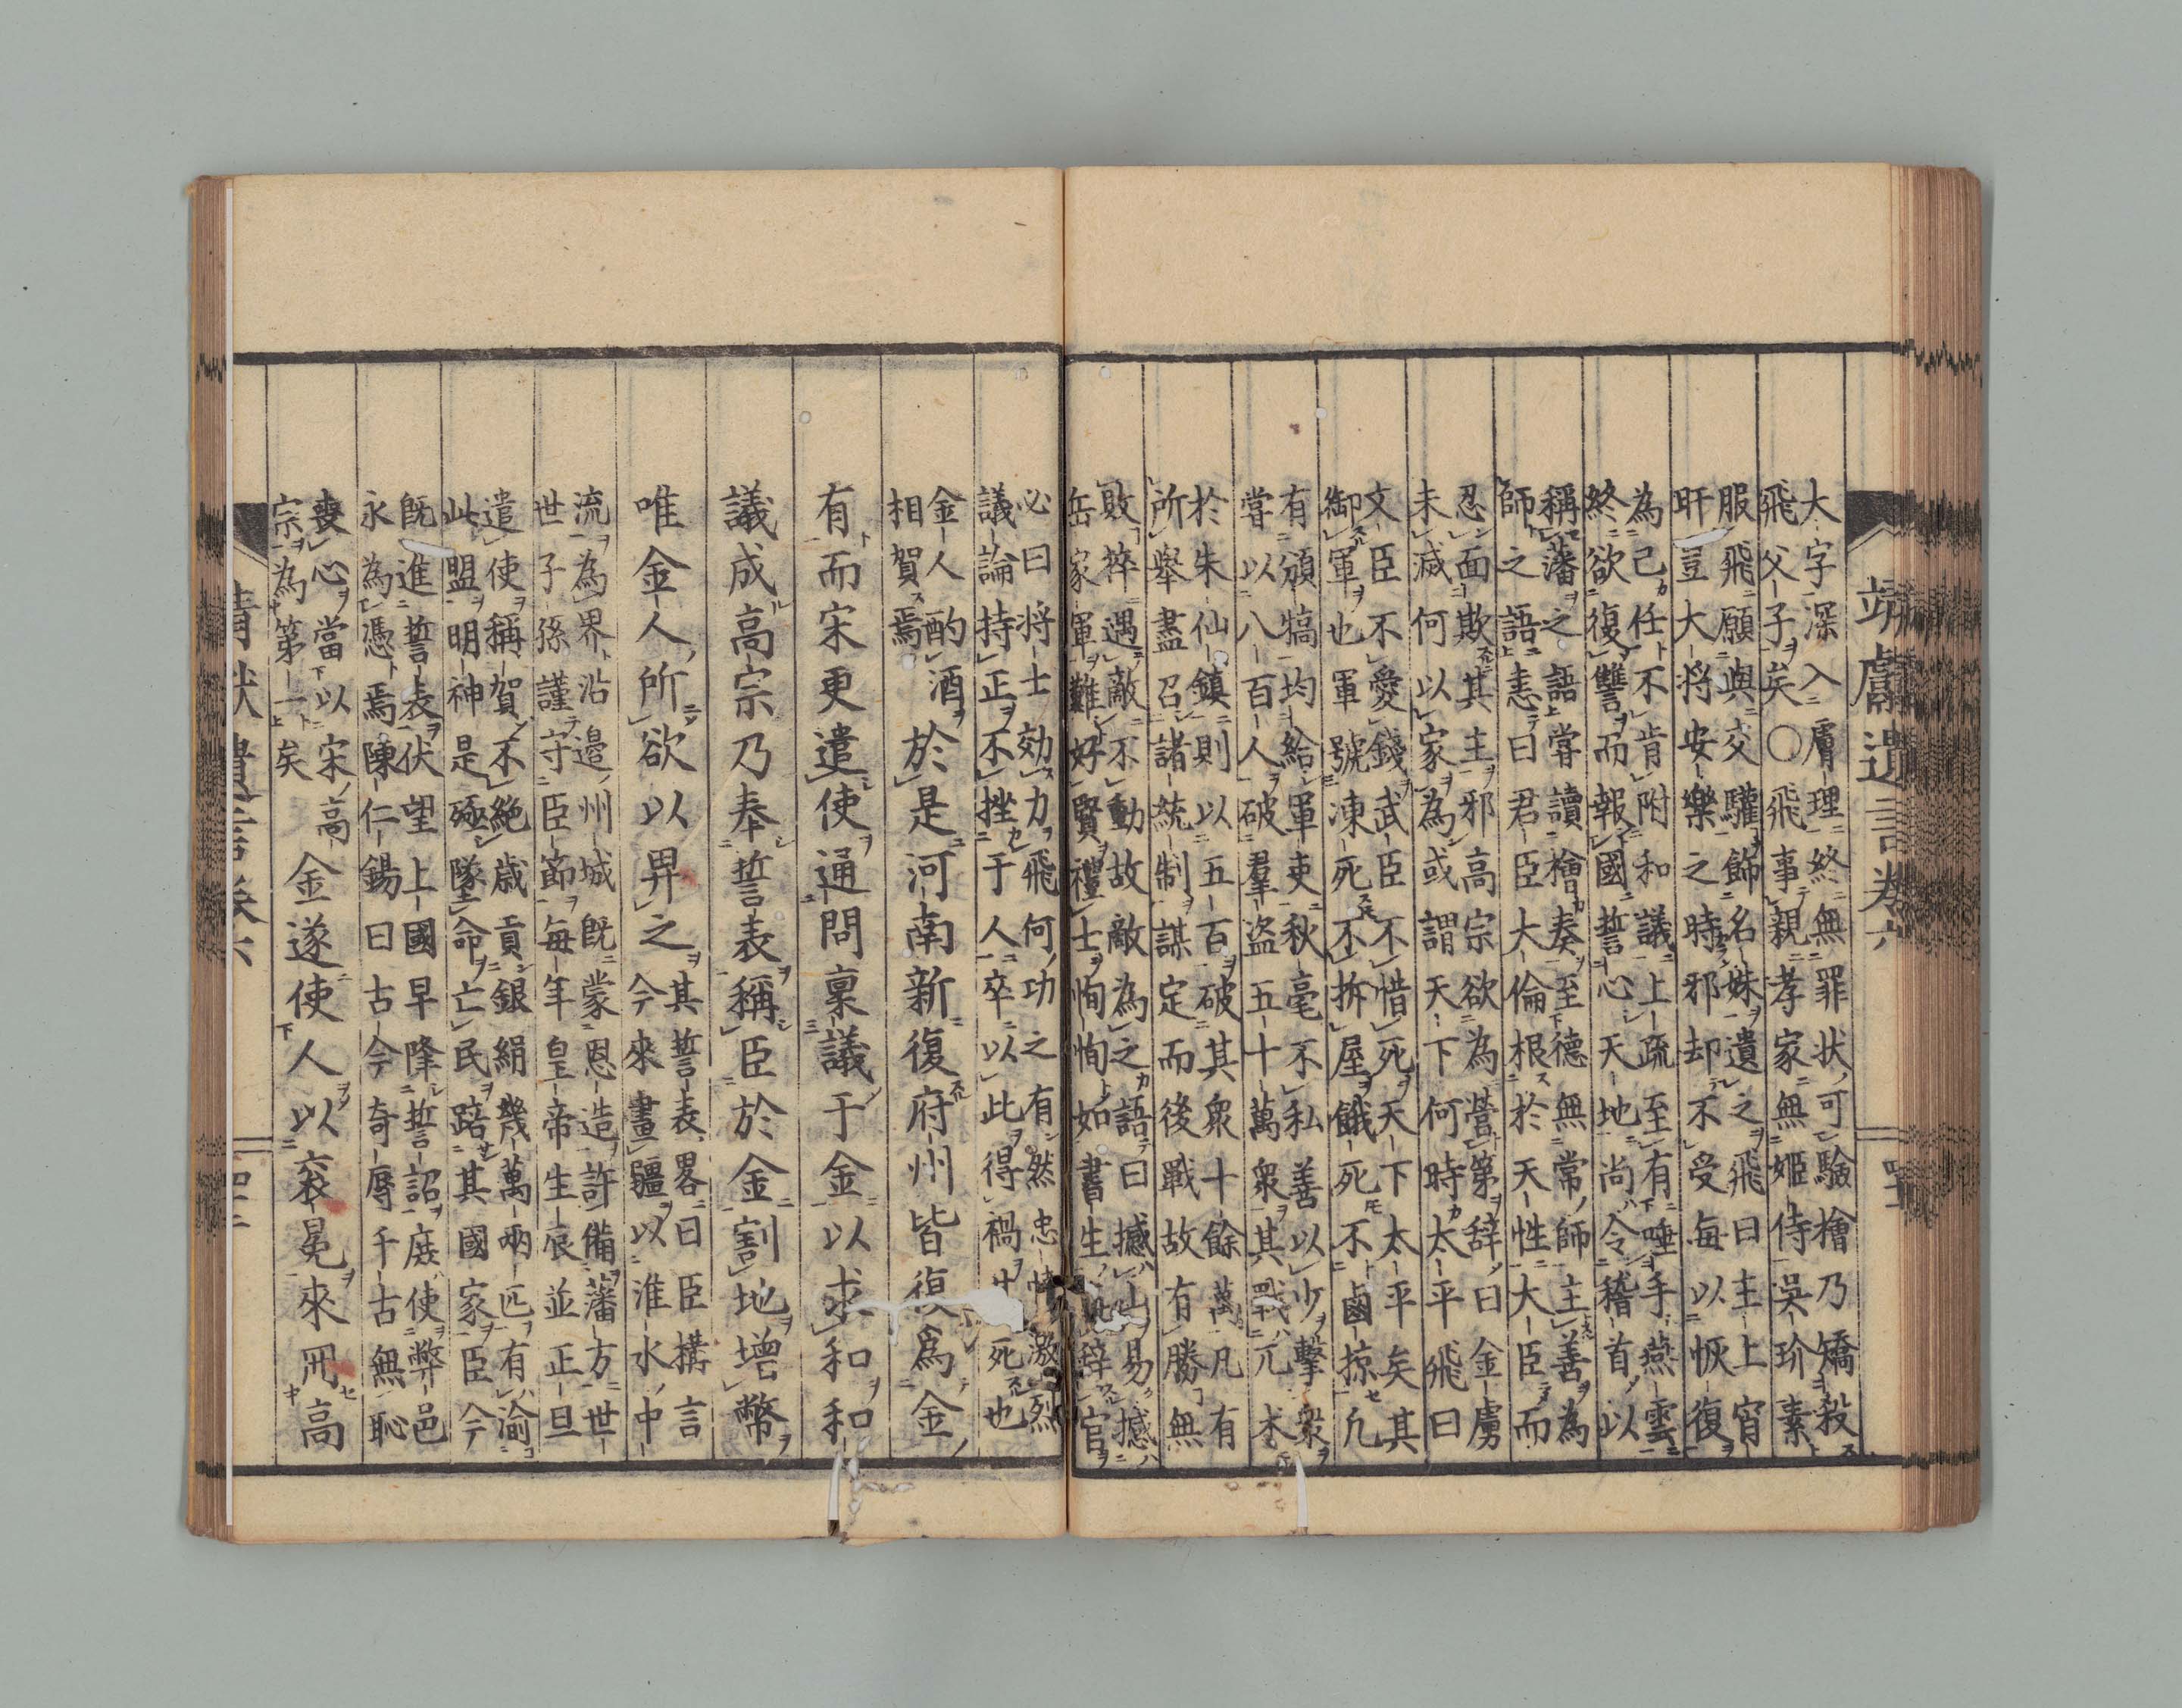 靖獻遺言卷六
大字深入膚理終無罪状可驗檜乃矯殺
飛父子矣〇飛事親孝家無姬侍吳玠素
服飛願與交驩飾名姝遺之飛曰主上宵
旰豈大將安樂之時邪却不受每以恢復
為己任不肯附和議上疏至有唾手燕雲
終欲復讐而報國誓心天地尚令稽首以
稱藩之語嘗讀檜奏至德無常師主善為
師之語恚曰君臣大倫根於天性大臣而
忍面欺其主邪高宗欲為營第辭曰金虜
未滅何以家為或謂天下何時太平飛曰
文臣不愛錢武臣不惜死天下太平矣其
御軍也軍號凍死不拆屋餓死不鹵掠凢
有頒犒均給軍吏秋毫不私善以少擊衆
嘗以八百人破羣盜五十萬衆其戰兀朮
於朱仙鎮則以五百破其衆十餘萬凡有
所舉盡召諸統制謀定而後戰故有勝無
敗猝遇敵不動故敵為之語曰撼山易撼
岳家軍難好賢禮士恂恂如書生辭官
必曰將士効力飛何功之有然忠憤激烈
議論持正不挫于人卒以此得禍死也
金人酌酒
相賀焉
於是河南新復府州皆復爲金
有而宋更遣使通問稟議于金以求和和
議成高宗乃奉誓表稱臣於金割地增幣
唯金人所欲以畀之
其誓表畧曰臣構言
今來畫疆以淮水中
流為界沿邉州城既蒙恩造許備藩方世
世子孫謹守臣節每年皇帝生辰並正旦
遣使稱賀不絶歳貢銀絹幾萬兩匹有渝
此盟明神是殛墜命亡民踣其國家臣今
既進誓表伏望上國早降誓詔庶使弊邑
永為憑焉陳仁錫曰古今奇辱千古無恥
喪心當以宋高
宗為第一矣
金遂使人以袞冕來冊高